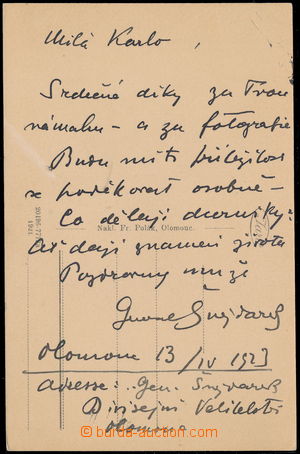 Milá Karlo,
Srdečné díky za Tvou
námahu – a za fotografie
Budu míti příležitost
se poděkovat osobně –
Co dělají
Nakl. Fr. Polák, Olomouc.
Ať dají znamení života
Pozdravy
Šnejdarek
Olomouc 13/IV 1923
adresse: Gen. Šnejdarek
Divisejní Velitelství
Olomouc
burda-auction.com